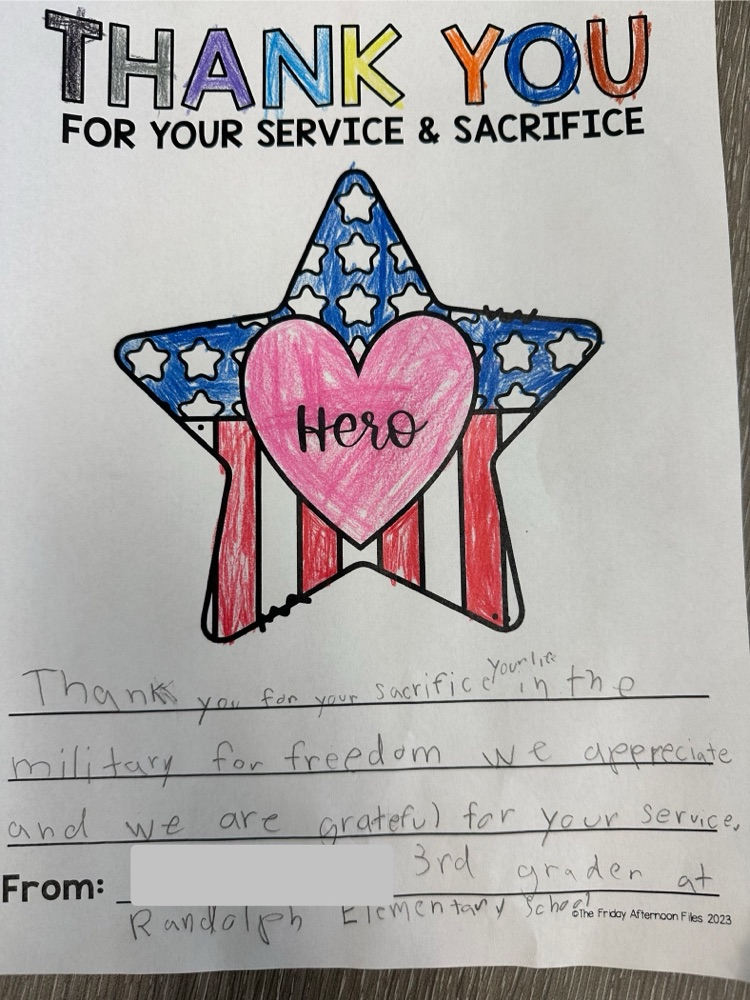 THANK YOU
FOR YOUR SERVICE & SACRIFICE
Hero
your life
Thank you for your sacrifice in the
military for freedom we appreciate
and we are grateful for your service.
From: 3rd grader at
Randolph Elementary School
©The Friday Afternoon Files 2023